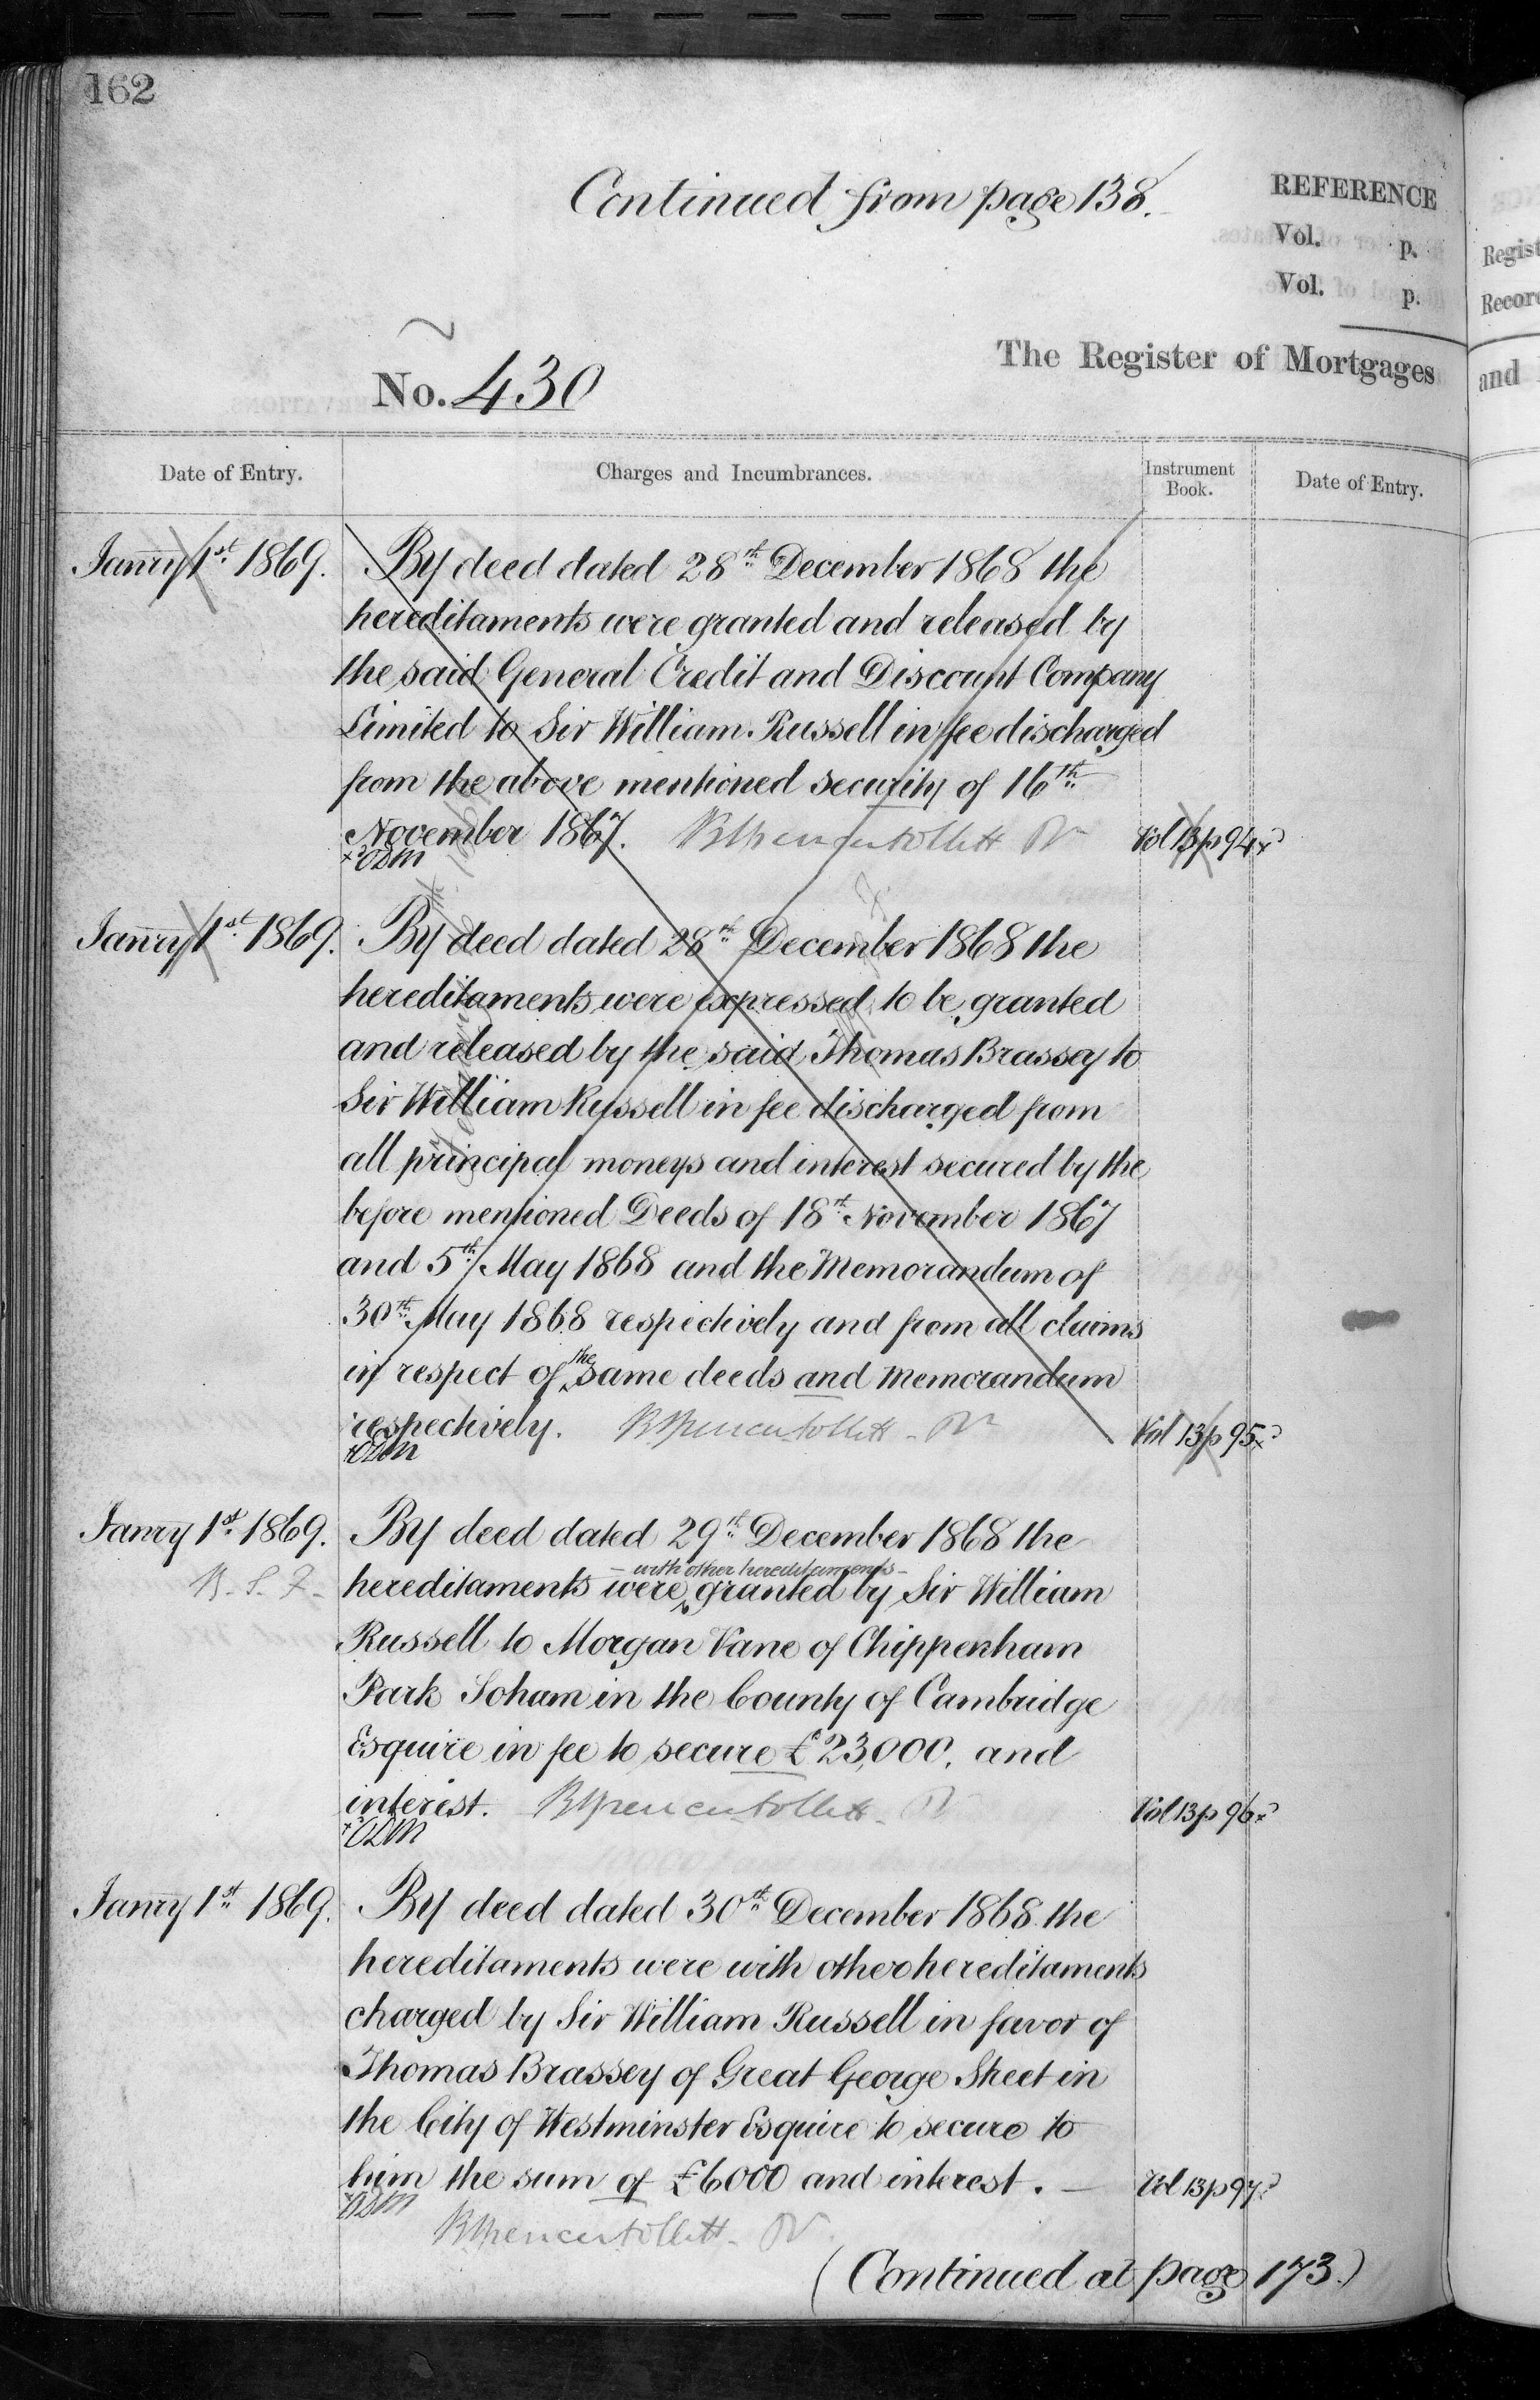 162
Continued from page 138.
REFERENCE
Vol. p.
Vol. p.
The Register of Mortgages
No. 430
Date of Entry.
Charges and Incumbrances.
Instrument Book.
Date of Entry.
Janry 1st 1869. By deed dated 28th December 1868 the
hereditaments were granted and released by
the said General Credit and Discount Company
Limited to Sir William Russell in fee discharged
from the above mentioned security of 16th
November 1867. Vol 13 p 94
Janry 1st 1869. By deed dated 28th December 1868 the
hereditaments were expressed to be granted
and released by the said Thomas Brassey to
Sir William Russell in fee discharged from
all principal moneys and interest secured by the
before mentioned Deeds of 18th November 1867
and 5th May 1868 and the Memorandum of
30th May 1868 respectively and from all claims
in respect of the same deeds and Memorandum
respectively. Vol 13 p 95
Janry 1st 1869. By deed dated 29th December 1868 the
hereditaments were with other hereditaments granted by Sir William
Russell to Morgan Vane of Chippenham
Park Soham in the County of Cambridge
Esquire in fee to secure £23,000. and
interest. Vol 13 p 96
Janry 1st 1869. By deed dated 30th December 1868 the
hereditaments were with other hereditaments
charged by Sir William Russell in favor of
Thomas Brassey of Great George Street in
the City of Westminster Esquire to secure to
him the sum of £6000 and interest. Vol 13 p 97
(Continued at page 173.)
Regist
Recor
and